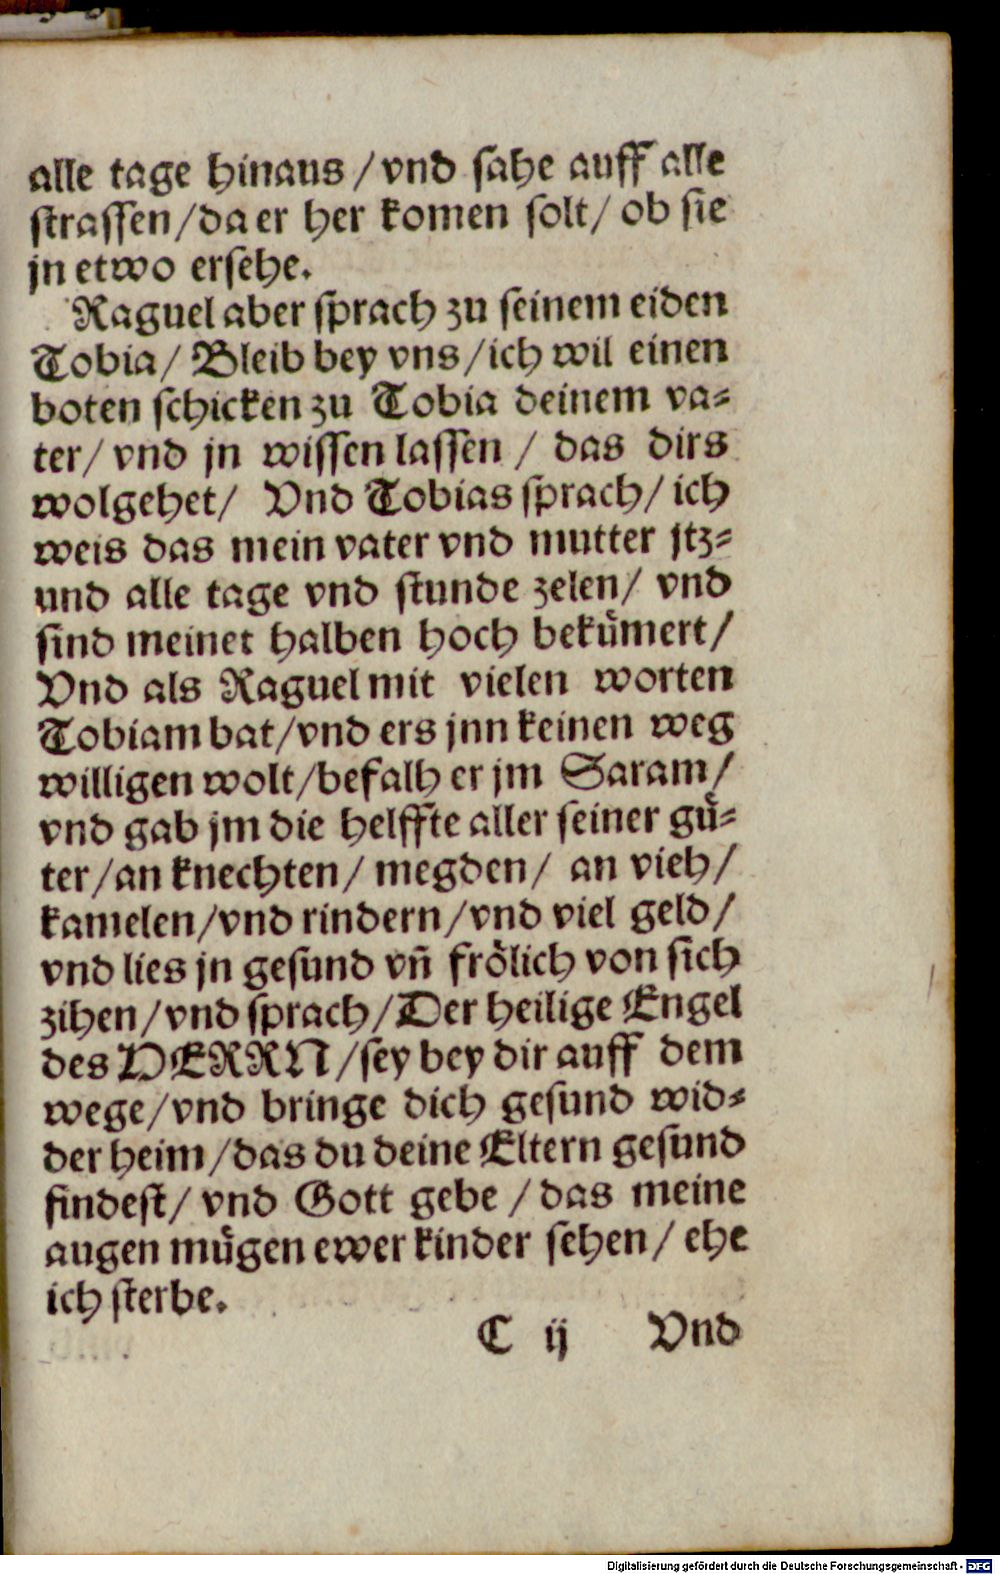 alle tage hinaus / vnd sahe auff alle
strassen / da er her komen solt / ob sie
jn etwo ersehe.
Raguel aber sprach zu seinem eiden
Tobia / Bleib bey vns / ich wil einen
boten schicken zu Tobia deinem va⸗
ter / vnd jn wissen lassen / das dirs
wolgehet / Vnd Tobias sprach / ich
weis das mein vater vnd mutter jtz⸗
und alle tage vnd stunde zelen / vnd
sind meinet halben hoch bekuͤmert /
Vnd als Raguel mit vielen worten
Tobiam bat / vnd ers jnn keinen weg
willigen wolt / befalh er jm Saram /
vnd gab jm die helffte aller seiner guͤ⸗
ter / an knechten / megden / an vieh /
kamelen / vnd rindern / vnd viel geld /
vnd lies jn gesund vñ froͤlich von sich
zihen / vnd sprach / Der heilige Engel
des HERRN / sey bey dir auff dem
wege / vnd bringe dich gesund wid⸗
der heim / das du deine Eltern gesund
findest / vnd Gott gebe / das meine
augen muͤgen ewer kinder sehen / ehe
ich sterbe.
C ij Vnd
Digitalisierung gefördert durch die Deutsche Forschungsgemeinschaft - DFG